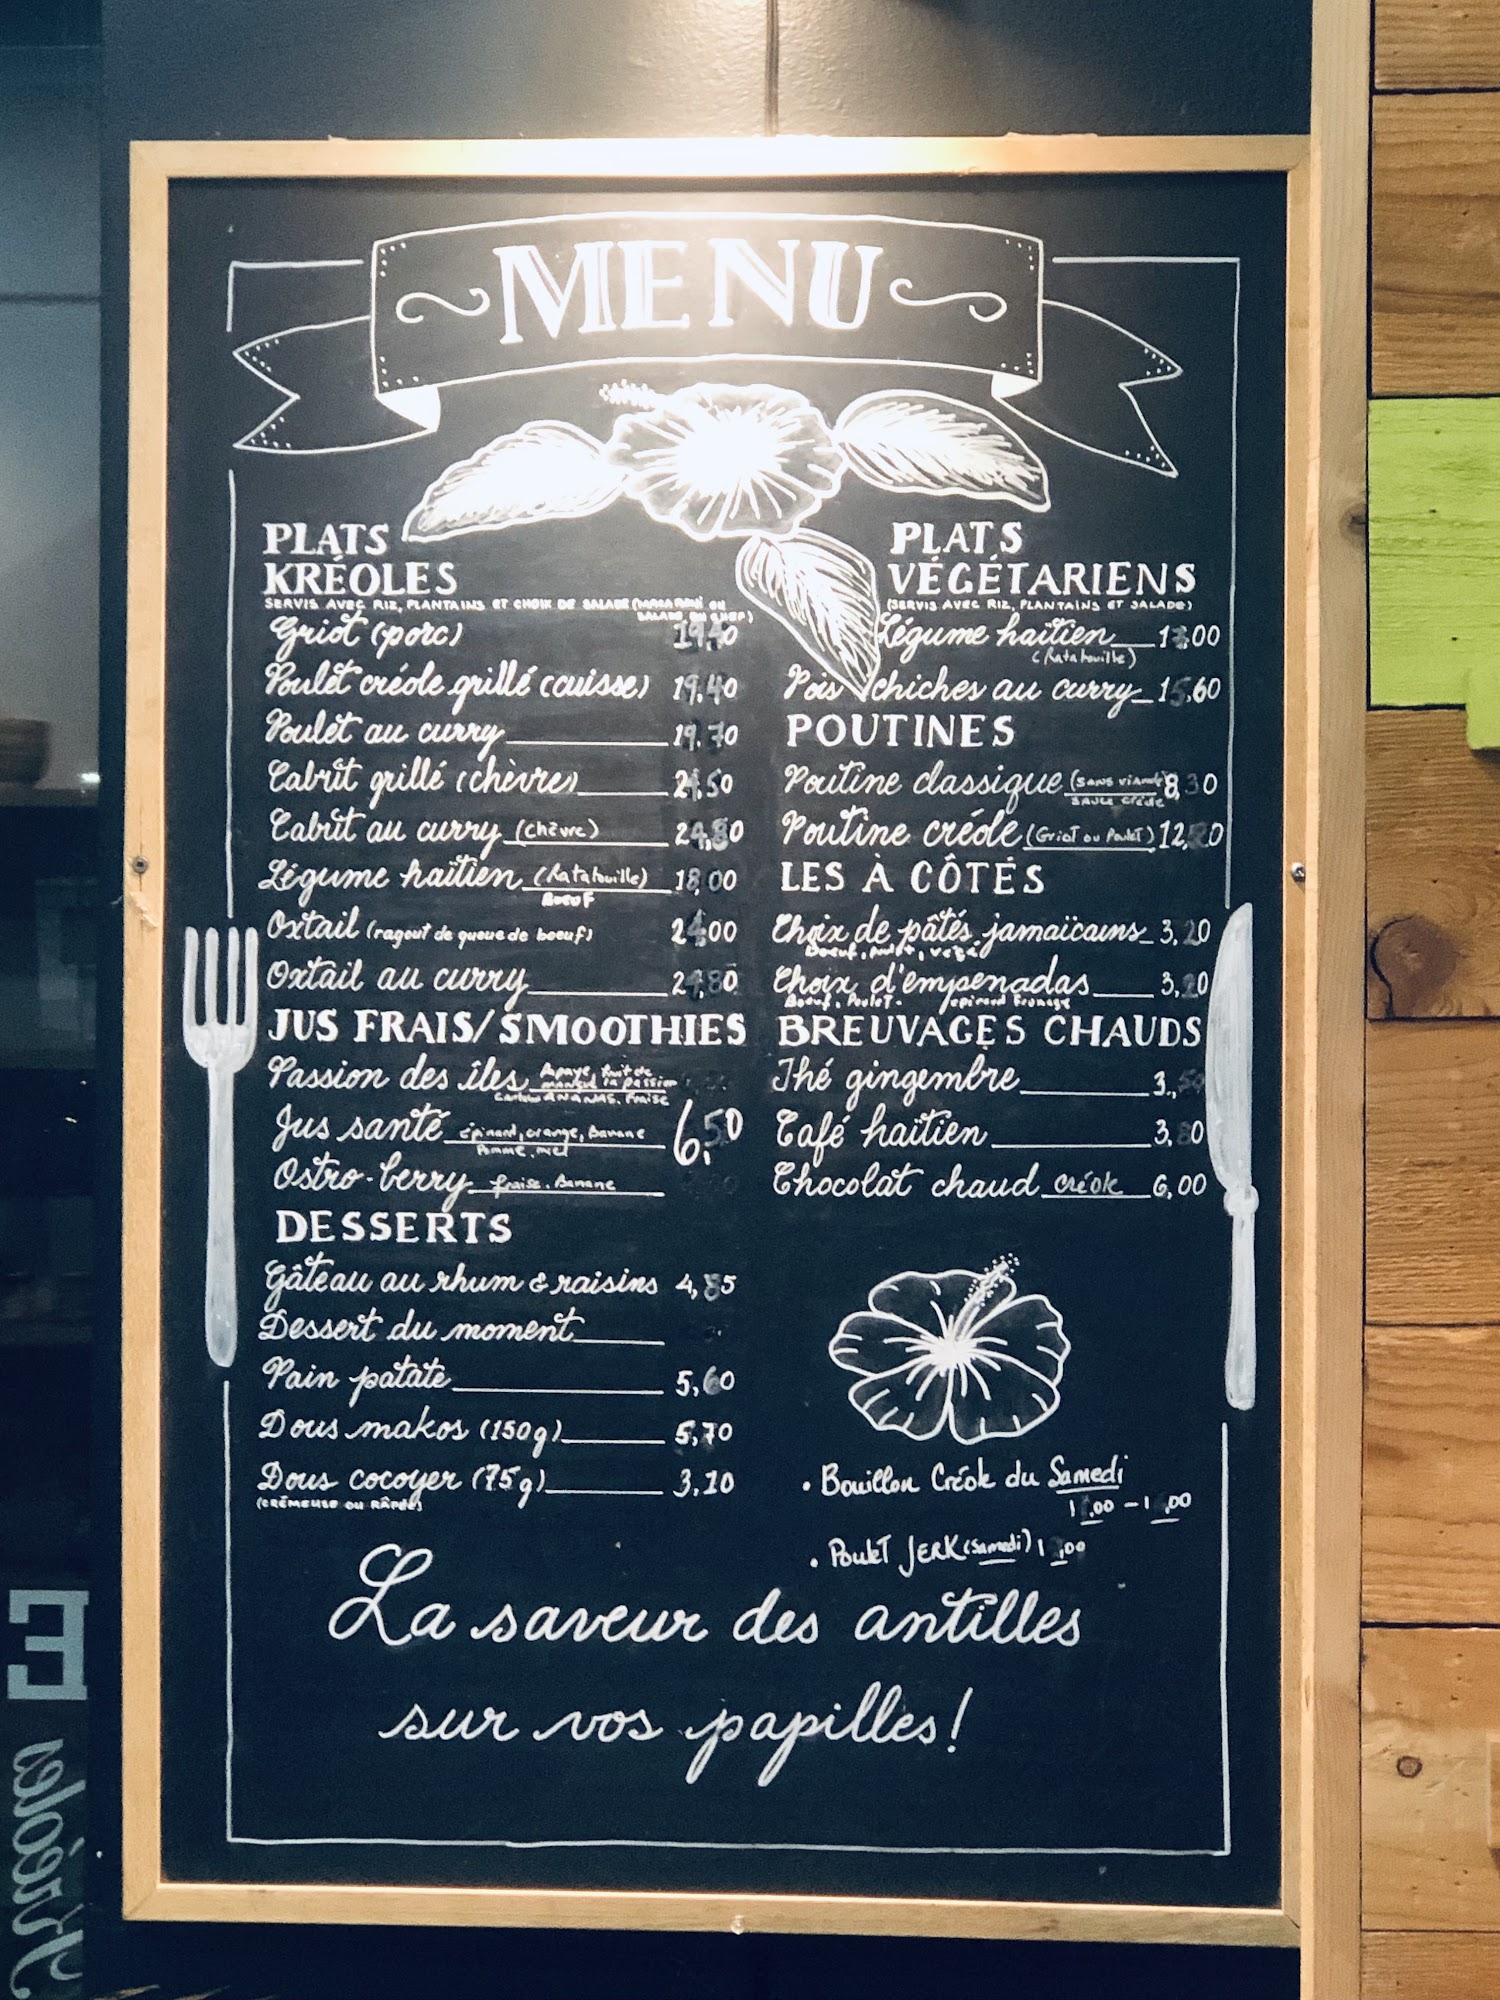 MENU
PLATS
KRÉOLES
SERVIS AVEC RIZ, PLANTAINS ET CHOIX DE SALADE (MACARONI OU
SALADE DU CHEF)
Griot (porc)
Poulet créole grillé (cuisse) 19,40
Poulet au curry 19,70
Cabrit grillé (chèvre)
Cabrit au curry (chèvre) 24,80
Légume haïtien (Ratatouille) 18,00
Boeuf
Oxtail (ragout de queue de boeuf)
Oxtail au curry
JUS FRAIS/SMOOTHIES
Passion des îles
ANANAS, Fraise
Jus santé épinard, orange, Banane 6,50
Pomme, miel
Ostro-berry fraise, Banane
DESSERTS
Gâteau au rhum & raisins 4,85
Dessert du moment
Pain patate 5,60
Dous makos (150g) 5,70
Dous cocoyer (75g) 3,10
(CRÉMEUSE OU RÂPÉE)
PLATS
VÉGÉTARIENS
(SERVIS AVEC RIZ, PLANTAINS ET SALADE)
Légume haïtien
(Ratatouille)
Pois chiches au curry 15,60
POUTINES
Poutine classique (SANS viande) 8,30
SAUCE créole
Poutine créole (Griot ou Poulet)
LES À CÔTÉS
Choix de pâtés jamaïcains 3,20
Boeuf, poulet, végé
Choix d'empenadas 3,20
Boeuf, Poulet. épinard fromage
BREUVAGES CHAUDS
Thé gingembre 3,50
Café haïtien 3,80
Chocolat chaud créole 6,00
• Bouillon Créole du Samedi
• Poulet JERK (Samedi)
La saveur des antilles
sur vos papilles!
E
Kréole